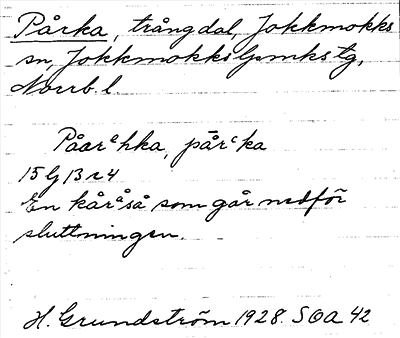 Pårka, trång dal, Jokkmokks
sn, Jokkmokks lpmks tg,
Norrb. l.
Påarᵃhka, pårᶜka
15 G 13 r 4
En kårᵃså som går nedför
sluttningen.
H. Grundström 1928. SOA 42